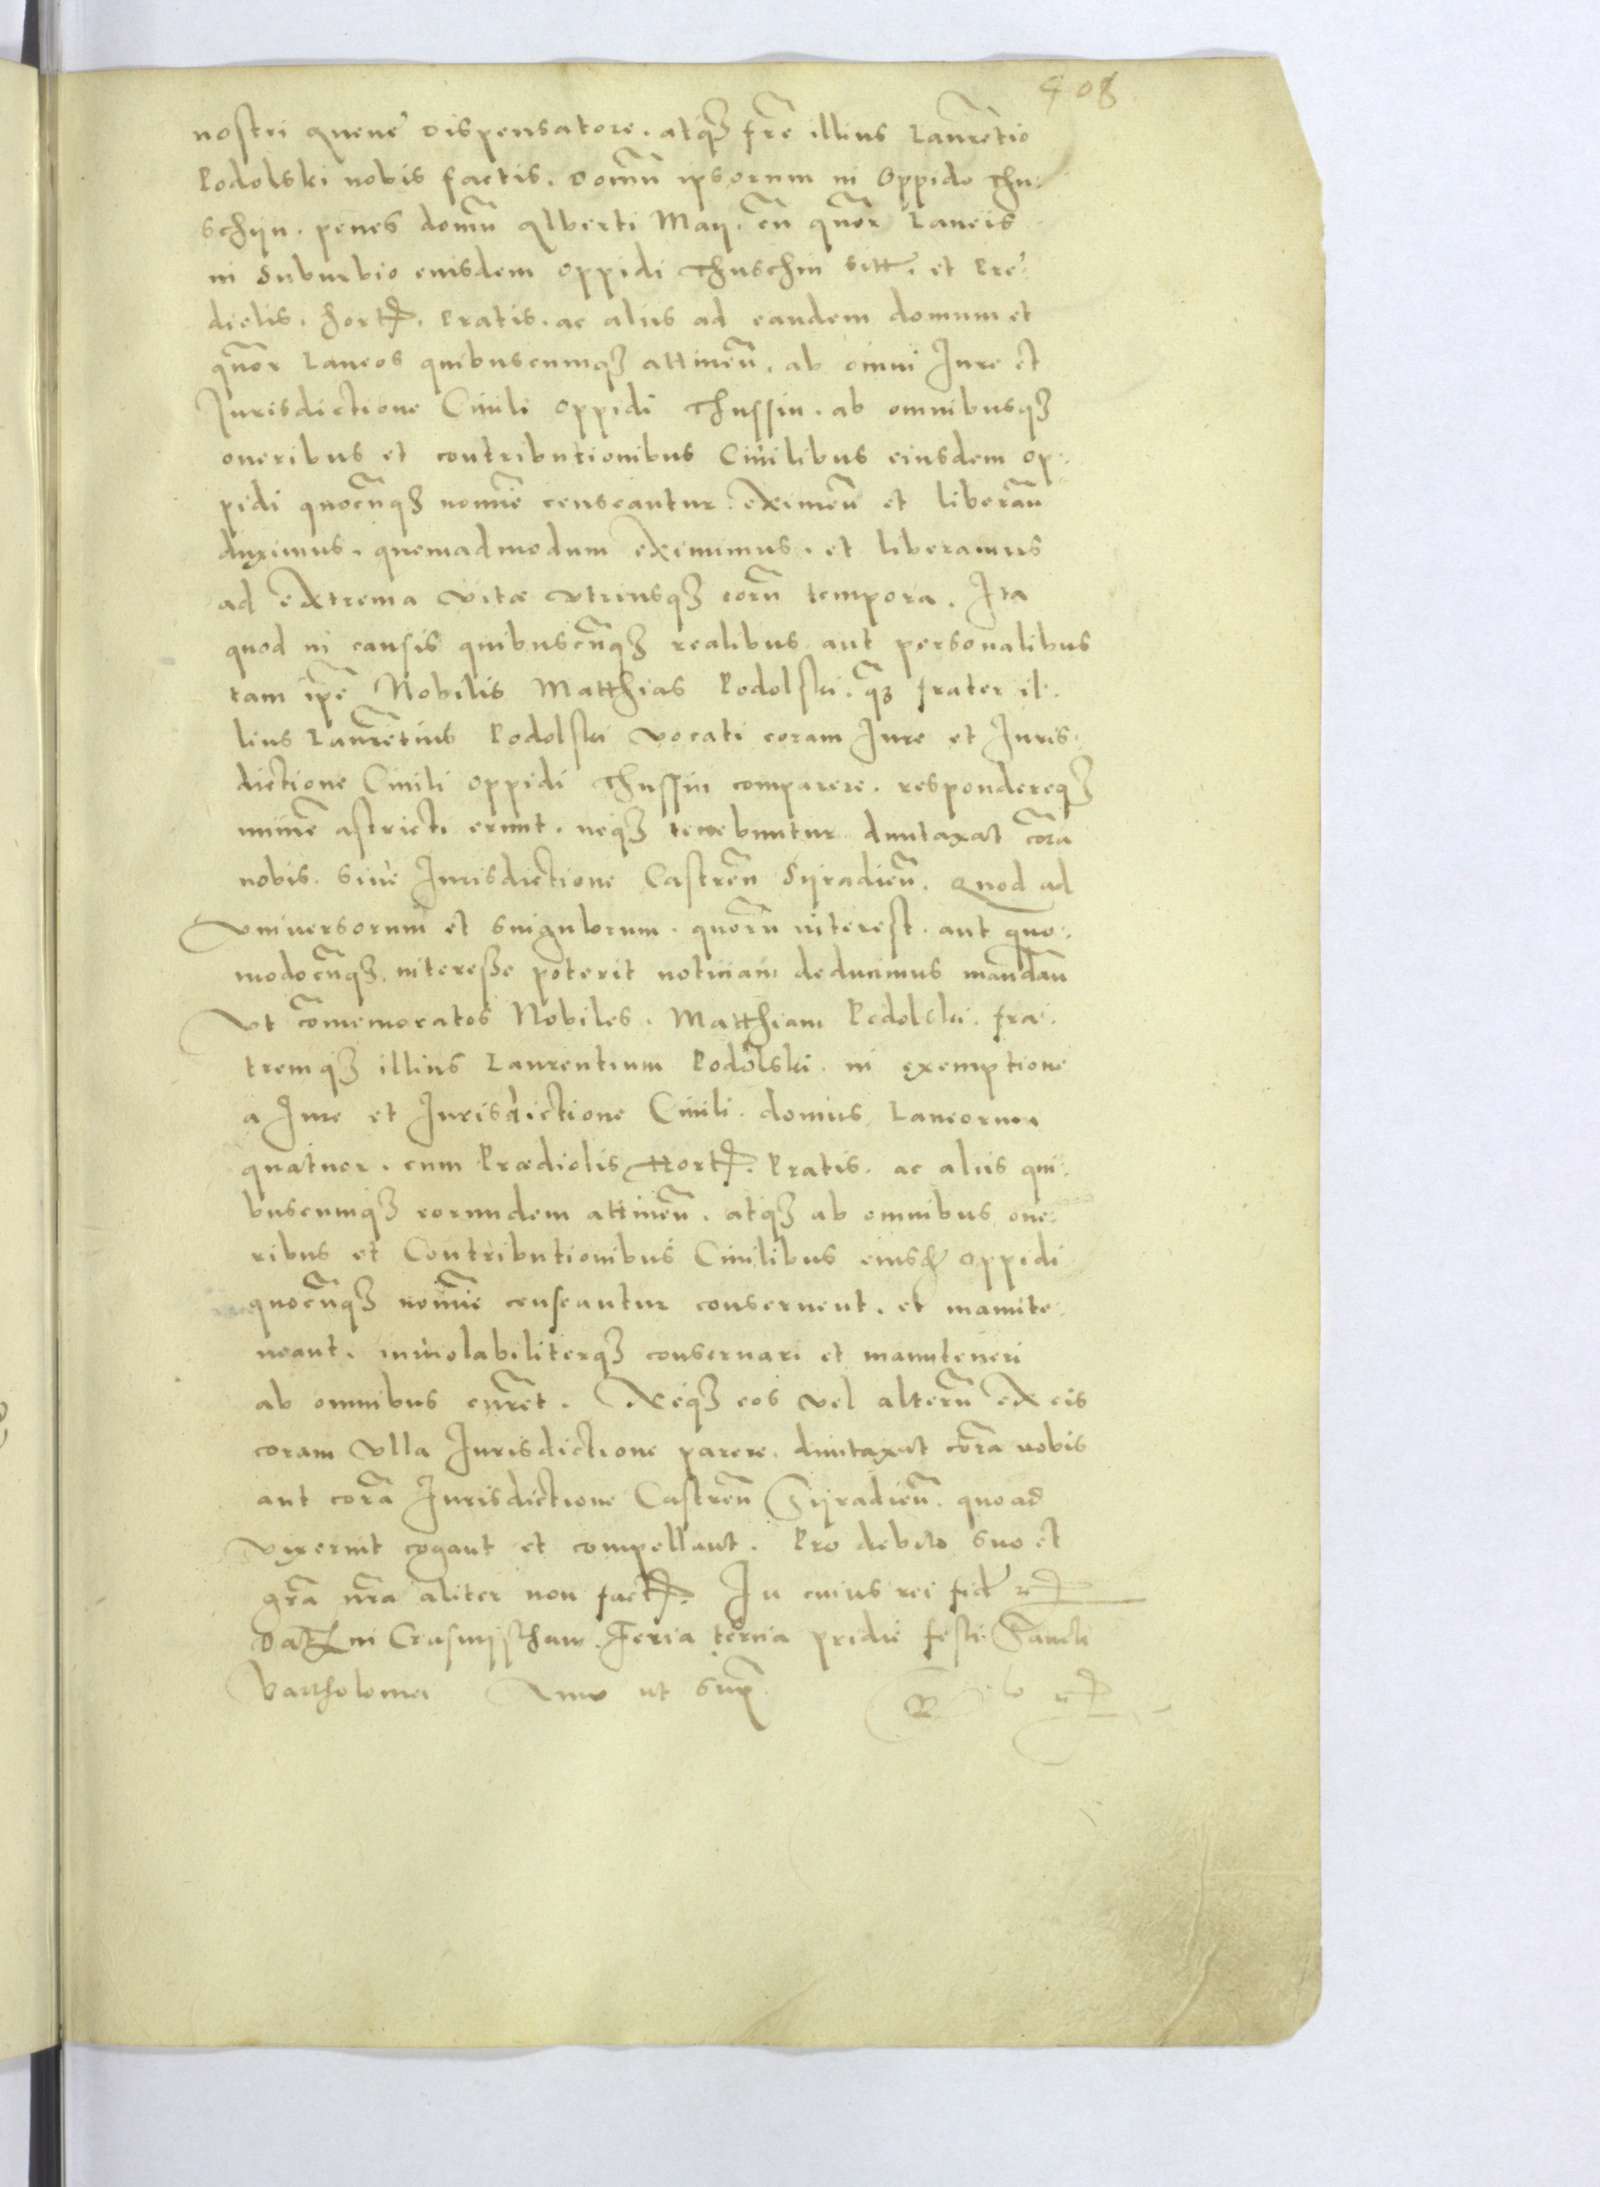 408
nostri quene dispensatore. atq3 fre illius Laurẽtio
Podolski nobis factis. Domũ ipsorum in Oppido Thu-
schyn. penes domũ Alberti May. cũ quor Laneis
in Suburbio eiusdem oppidi Thuschin sitt. et Pre-
diolis. Hort. Pratis. ac aliis ad eandem domum et
quor Laneos quibuscumq3 attineñ. ab omni Jure et
Jurisdictione Ciuili oppidi Thussin. ab omnibusq3
oneribus et contributionibus Ciuilibus eiusdem op-
pidi quocũq3 nomie censeantur. eximeñ et liberañ
duximus. quemadmodum eximimus. et liberamus
ad extrema vitæ vtriusq3 eorũ tempora. Ita
quod in causis quibuscũq3 realibus aut personalibus
tam ipe Nobilis Matthias Podolski. q3 frater il-
lius Laurẽtius Podolski vocati coram Jure et Juris-
dictione Ciuili oppidi Thussin comparere. respondereq3
mime astricti erunt. neq3 tenebuntur duntaxat corã
nobis. siue Jurisdictione Castreñ Syradieñ. Quod ad
vniuersorum et singulorum. quorũ interest. aut quo-
modocũq3. interesse poterit noticiam deducimus mandañ
Vt comemoratos Nobiles. Matthiam Podolski. fra-
tremq3 illius Laurentium Podolski. in exemptione
a Jure et Jurisdictione Ciuili. domus Laneorum
quatuor. cum Prædiolis Hort. Pratis. ac aliis qui-
buscumq3 eorundem attineñ. atq3 ab omnibus one-
ribus et Contributionibus Ciuilibus eiusd oppidi
quocũq3 nomie censeantur conseruent. et manute-
neant. inuiolabiliterq3 conseruari et manuteneri
ab omnibus curẽt. Neq3 eos vel alterũ ex eis
coram vlla Jurisdictione parere. duntaxat corã nobis
aut corã Jurisdictione Castreñ Syradieñ. quoad
vixerint cogant et compellant. Pro debito suo et
grã nrã aliter non fact. In cuius rei fid
Dat in Crasnijsthaw. Feria tercia pridie festi Sancti
Bartholomei Anno ut sup